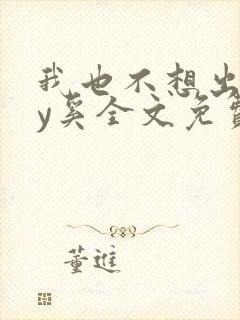 我也不想出
y奚全文免费
董进